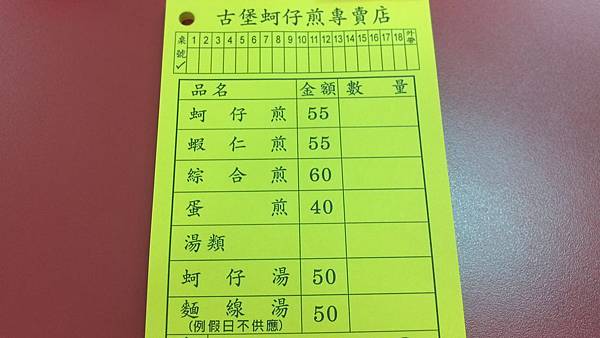 古堡蚵仔煎專賣店
桌號✓ 1 2 3 4 5 6 7 8 9 10 11 12 13 14 15 16 17 18 外帶
品名 金額 數量
蚵仔煎 55
蝦仁煎 55
綜合煎 60
蛋煎 40
湯類
蚵仔湯 50
麵線湯 50
(例假日不供應)